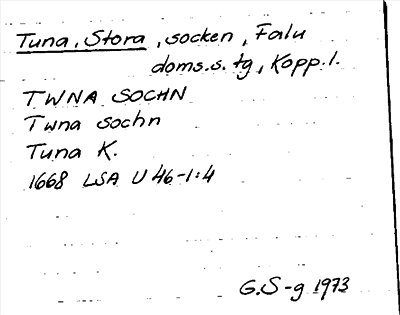 Tuna, Stora, socken, Falu
doms.s. tg, Kopp.l.
TWNA SOCHN
Twna sochn
Tuna K.
1668 LSA U 46-1:4
G.S-g 1973